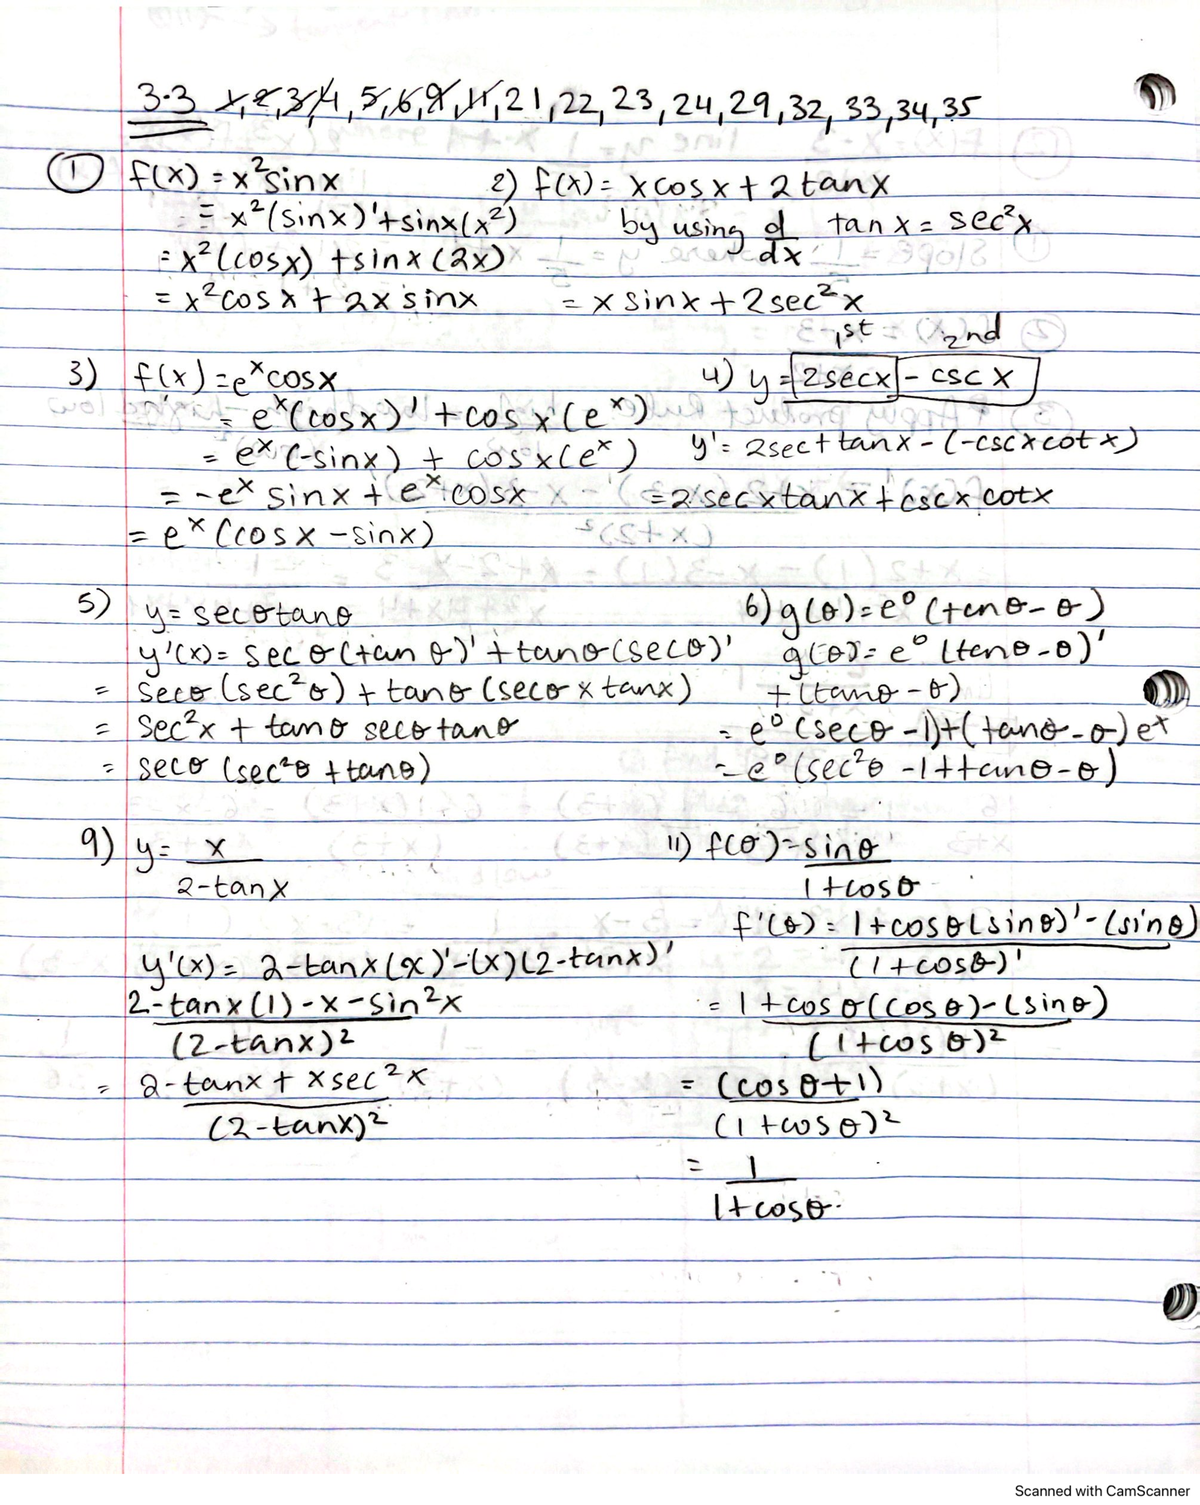 3.3 1,2,3,4,5,6,9,11,21,22,23,24,29,32,33,34,35
① f(x) = x² sinx
= x²(sinx)'+sinx(x²)
= x²(cosx) +sinx(2x)
= x²cosx + 2x sinx
2) f(x) = x cosx + 2 tanx
by using d/dx tan x = sec²x
= x sinx + 2sec²x
3) f(x) = eˣcosx
= eˣ(cosx)' + cos x(eˣ)
= eˣ(-sinx) + cosx(eˣ)
= -eˣ sinx + eˣ cosx
= eˣ (cosx - sinx)
1st 2nd
4) y = 2secx - csc x
y' = 2sec+tanx - (-cscxcotx)
= 2 secxtanx + cscx cotx
5) y = secθtanθ
y'(x) = secθ(tanθ)' + tanθ(secθ)'
= secθ(sec²θ) + tanθ(secθ x tanx)
= sec²x + tanθ secθ tanθ
= secθ (sec²θ + tanθ)
6) g(θ) = e^θ (tanθ - θ)
g(θ)' = e^θ (tanθ - θ)'
+ (tanθ - θ)
= e^θ (secθ - 1)+(tanθ - θ)eˣ
= e^θ (sec²θ - 1 + tanθ - θ)
9) y = x
2-tanx
y'(x) = 2-tanx(x)'-(x)(2-tanx)'
2-tanx(1) - x - sin²x
(2-tanx)²
= 2-tanx + xsec²x
(2-tanx)²
11) f(θ) = sinθ
1+cosθ
f'(θ) = 1+cosθ(sinθ)' - (sinθ)
(1+cosθ)'
= 1+cosθ(cosθ)-(sinθ)
(1+cosθ)²
= (cosθ+1)
(1+cosθ)²
= 1
1+cosθ
Scanned with CamScanner